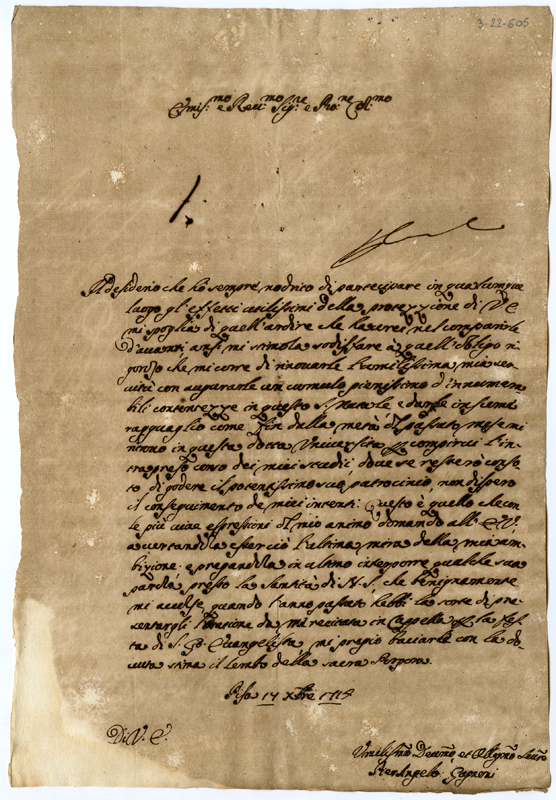 3-22-605
Emis.mo e Reu.mo Sig.re e Pro.ne Col.mo
Il desiderio che hò sempre nodrito di partecipare in qualunque
luogo gl'effetti utilissimi della protezzione di V.E.
mi spoglia di quell'ardire che haverei nel comparirle
d'avanti anzi mi stimola sodisfare à quell'obligo
che mi corre di rinovarle l'umilissima mia ser
vitù con augurarle un cumulo pienissimo d'innumera
bili contentezze in questo S. Natale e darle insieme
ragguaglio come fin dalla metà del passato mese mi
ritrovo in questa dotta Università per compirci l'in
trapreso corso dei miei studii dove se resterò conso
to di godere il potentissimo suo patrocinio non dispero
il conseguimento de miei intenti. Questo è quello che con
le più vive espressioni del mio animo domando all'E.V.
accertandola esserciò l'ultima mira della mia am
bizione e pregandola in ultimo interporre qualche sua
parola presso la Santità di N.S. che benignamente
mi accolse quando l'anno passato hebbi la sorte di pre
sentargli l'orazione da me recitata in Cappella per la Fes
ta di S. Gio. Evangelista mi pregio baciarle con la do
vuta stima il lembo della sacra Porpora.
Pisa 17 Xbre 1715
Di V. E.
Umilissmo Devmo et Obligmo Servre
PierAngelo